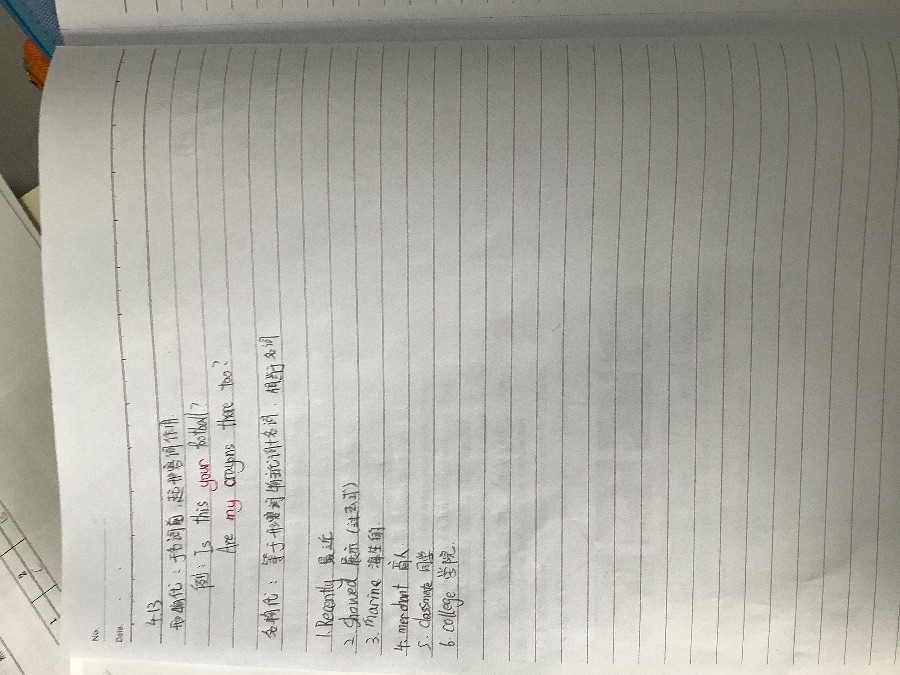 No.
Date.
4.13
形物代：+名词前，起形容词作用.
例：Is this your football?
Are my crayons there too?
名物代：等于形容词物主代词+名词. 相当于名词
1. Recently 最近
2. Showed 展示 (过去式)
3. Marine 海生的
4. merchant 商人
5. Classmate 同学
6. college 学院.